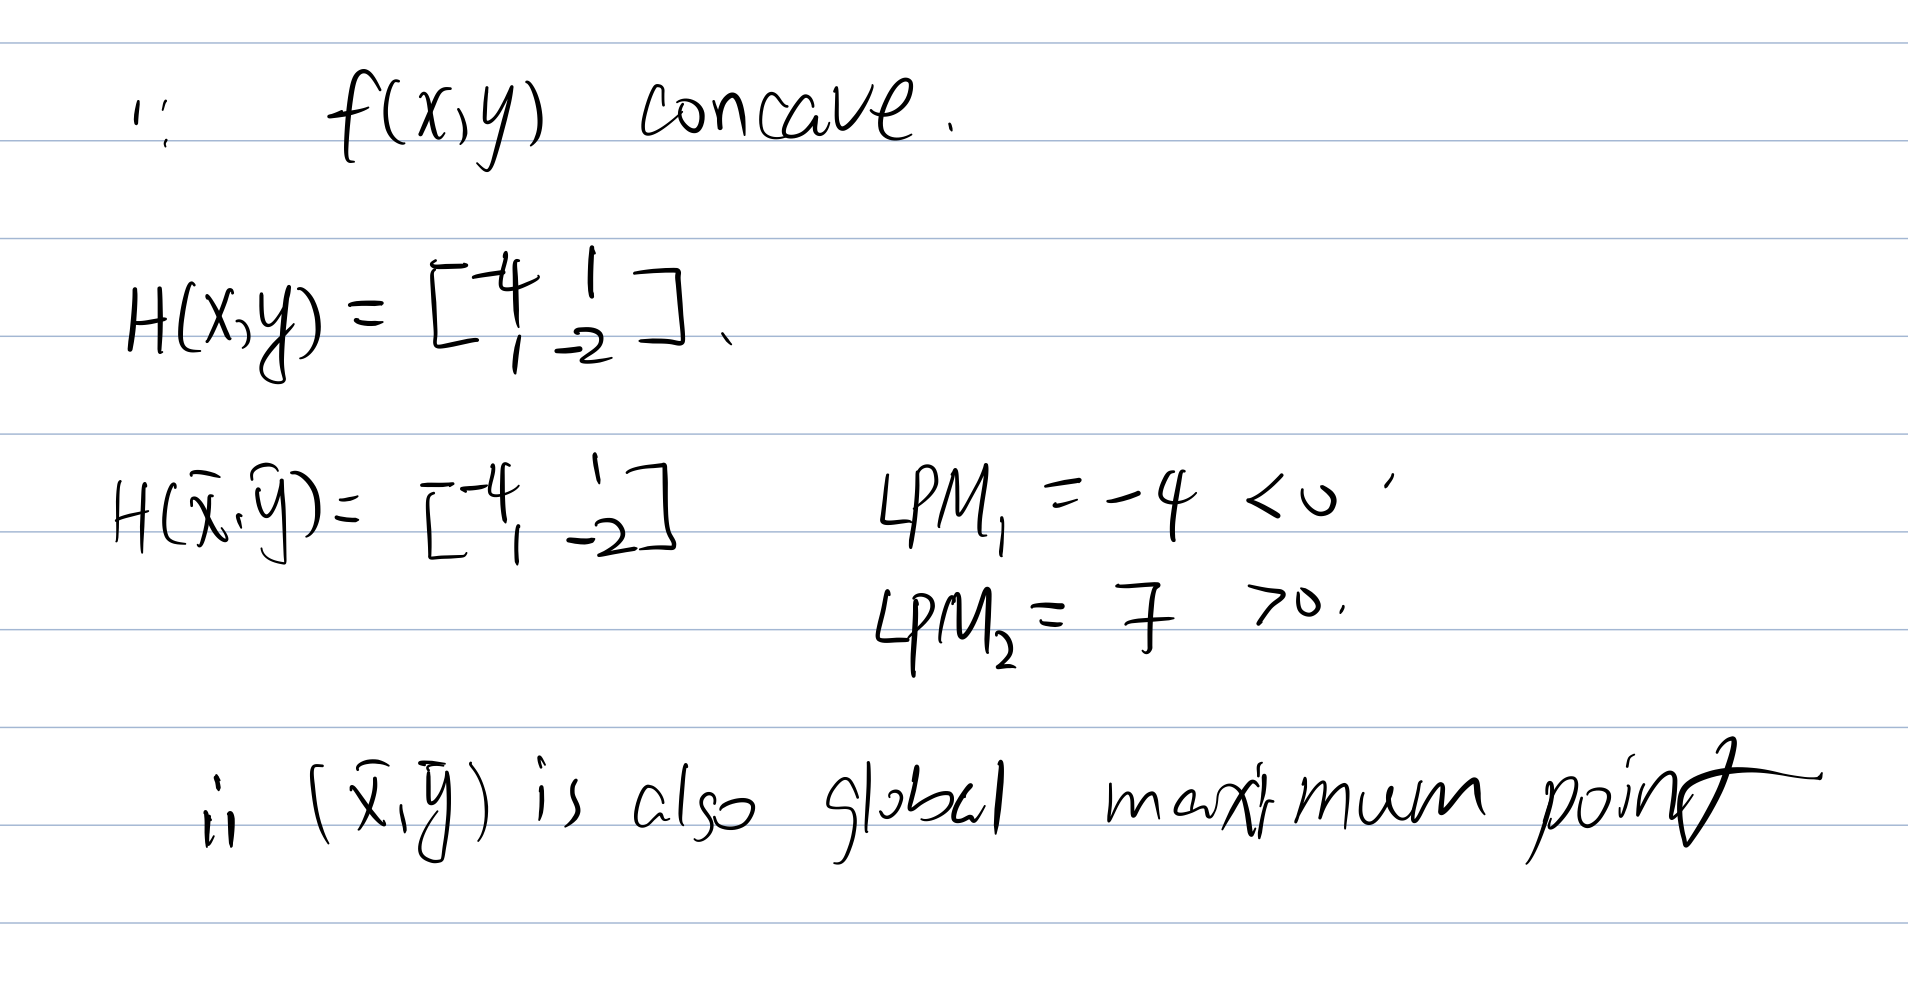 ∵ f(x,y) concave.
H(x,y) = [-4 1
1 -2].
H(x̄,ȳ) = [-4 1
1 -2] LPM₁ = -4 < 0
LPM₂ = 7 > 0.
∴ (x̄,ȳ) is also global maximum point